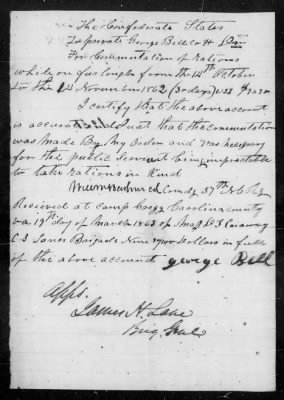 The Confederate States
To private George Bell Co H Dr
For Commutation of rations
while on furlough from the 14th October
to the 14 November 1862 (30 days)
I certify that the above account
is accurate and just that the commutation
was made By my order and was necessary
for the public service it being impracticable
to take rations in kind
Wm M Barbour Col Comdg 37th N C Reg
Received at camp Gregg Caroline county
va 19th day of March 1863 of
C S Lanes Brigade Nine Dollars in full
of the above account george Bell
Appd.
James H. Lane
Brig. Genl